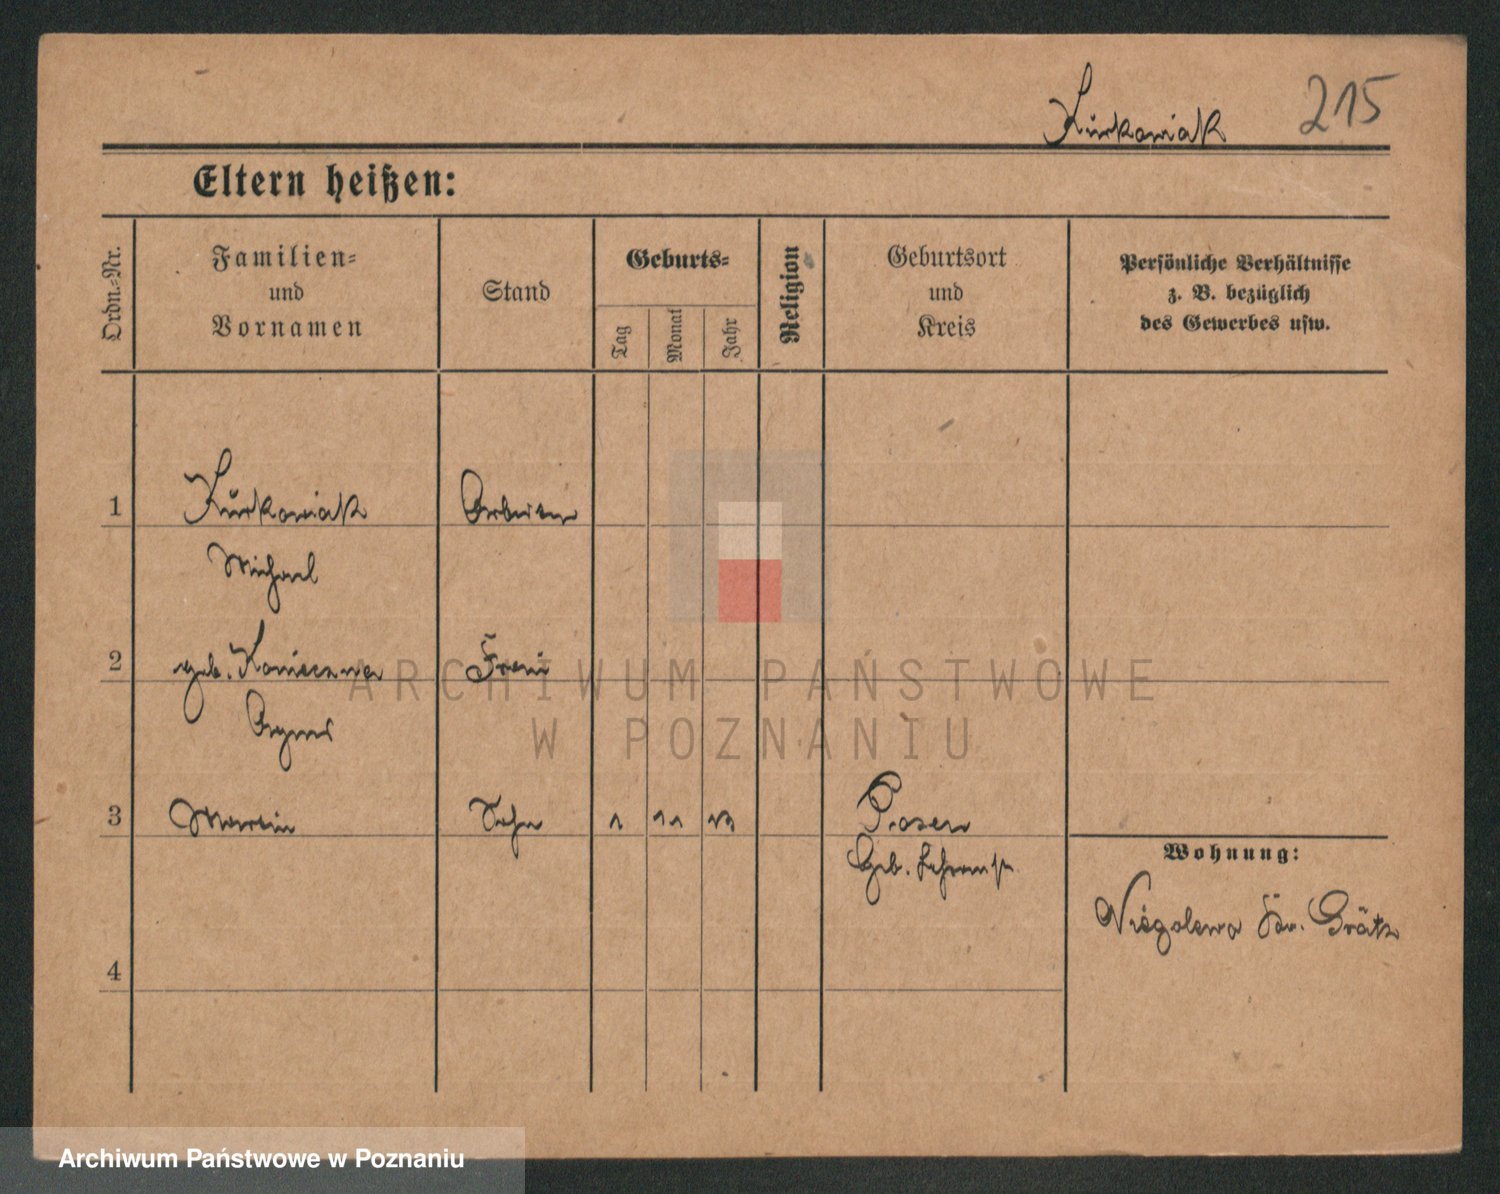 Kurkowiak 215
Eltern heißen:
Ordn.-Nr.
Familien-
und
Vornamen
Stand
Geburts-
Tag
Monat
Jahr
Religion
Geburtsort
und
Kreis
Persönliche Verhältnisse
z. B. bezüglich
des Gewerbes usw.
1 Kurkowiak Arbeiter
Michael
2 geb. Konieczna Frau
Agnes
3 Martin Sohn 1 11 13 Posen
Geb. Lehranst.
Wohnung:
Niegolewo Kr. Grätz
4
ARCHIWUM PAŃSTWOWE
W POZNANIU
Archiwum Państwowe w Poznaniu